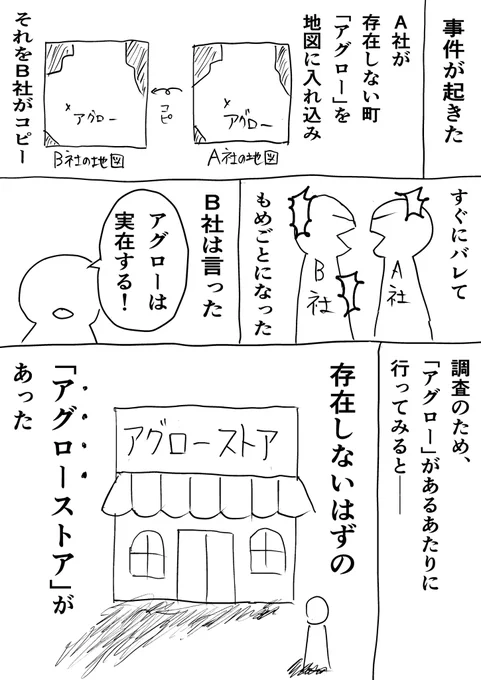 事件が起きた
A社が
存在しない町
「アグロー」を
地図に入れ込み
アグロー
A社の地図
コピ
アグロー
B社の地図
それをB社がコピー
すぐにバレて
A社
B社
もめごとになった
B社は言った
アグローは
実在する!
調査のため、
「アグロー」があるあたりに
行ってみると――
存在しないはずの
アグローストア
「アグローストア」が
あった